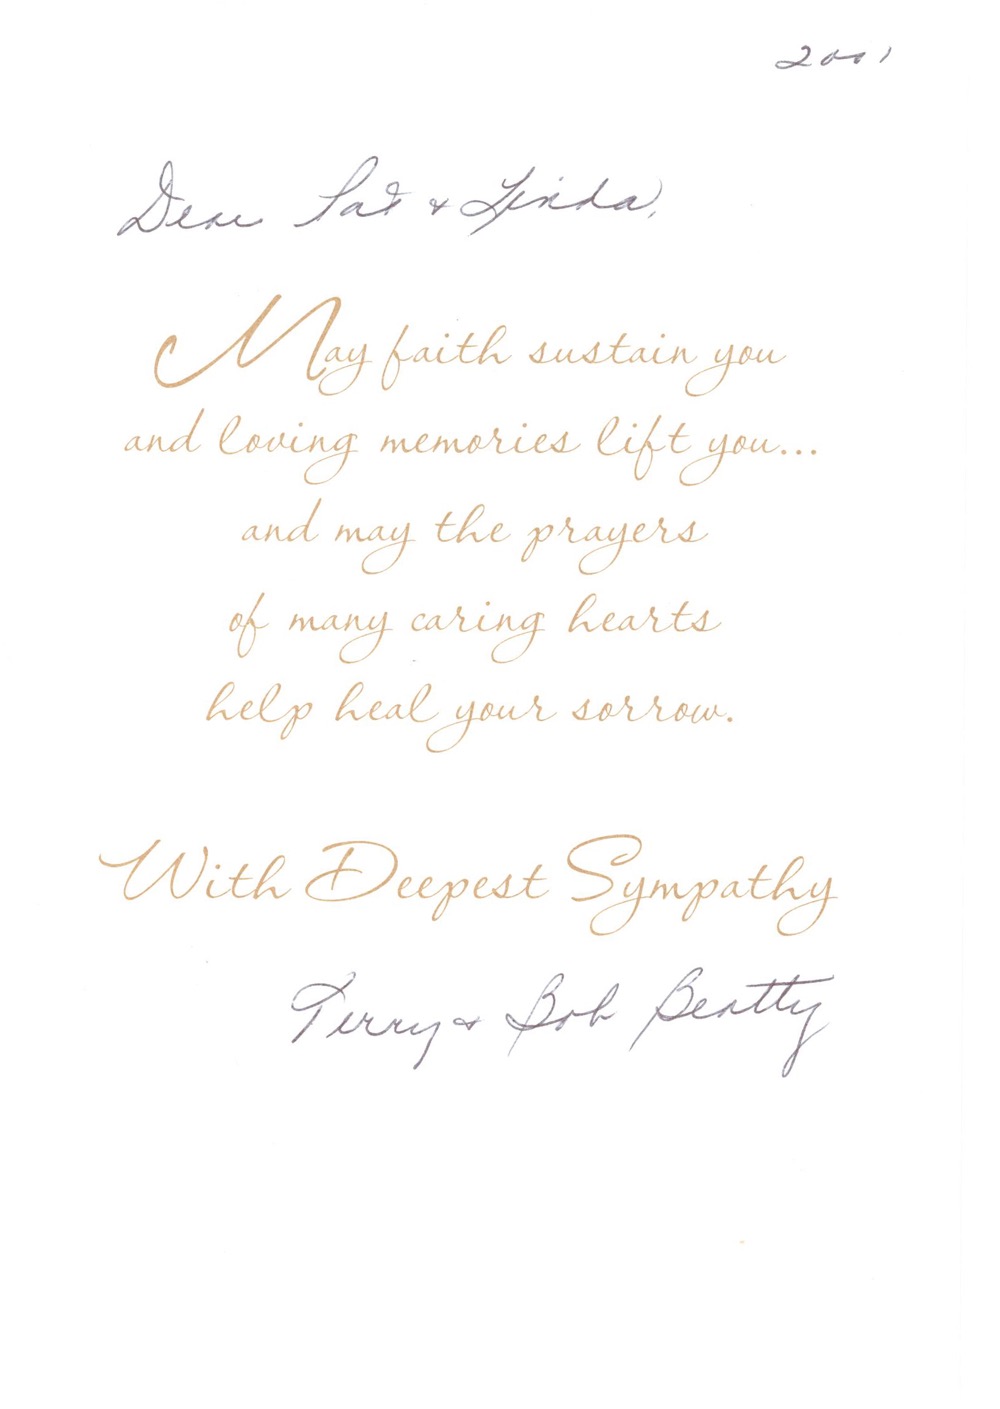 2001
Dear Pat & Linda,
May faith sustain you
and loving memories lift you...
and may the prayers
of many caring hearts
help heal your sorrow.
With Deepest Sympathy
Terry & Bob Beatty